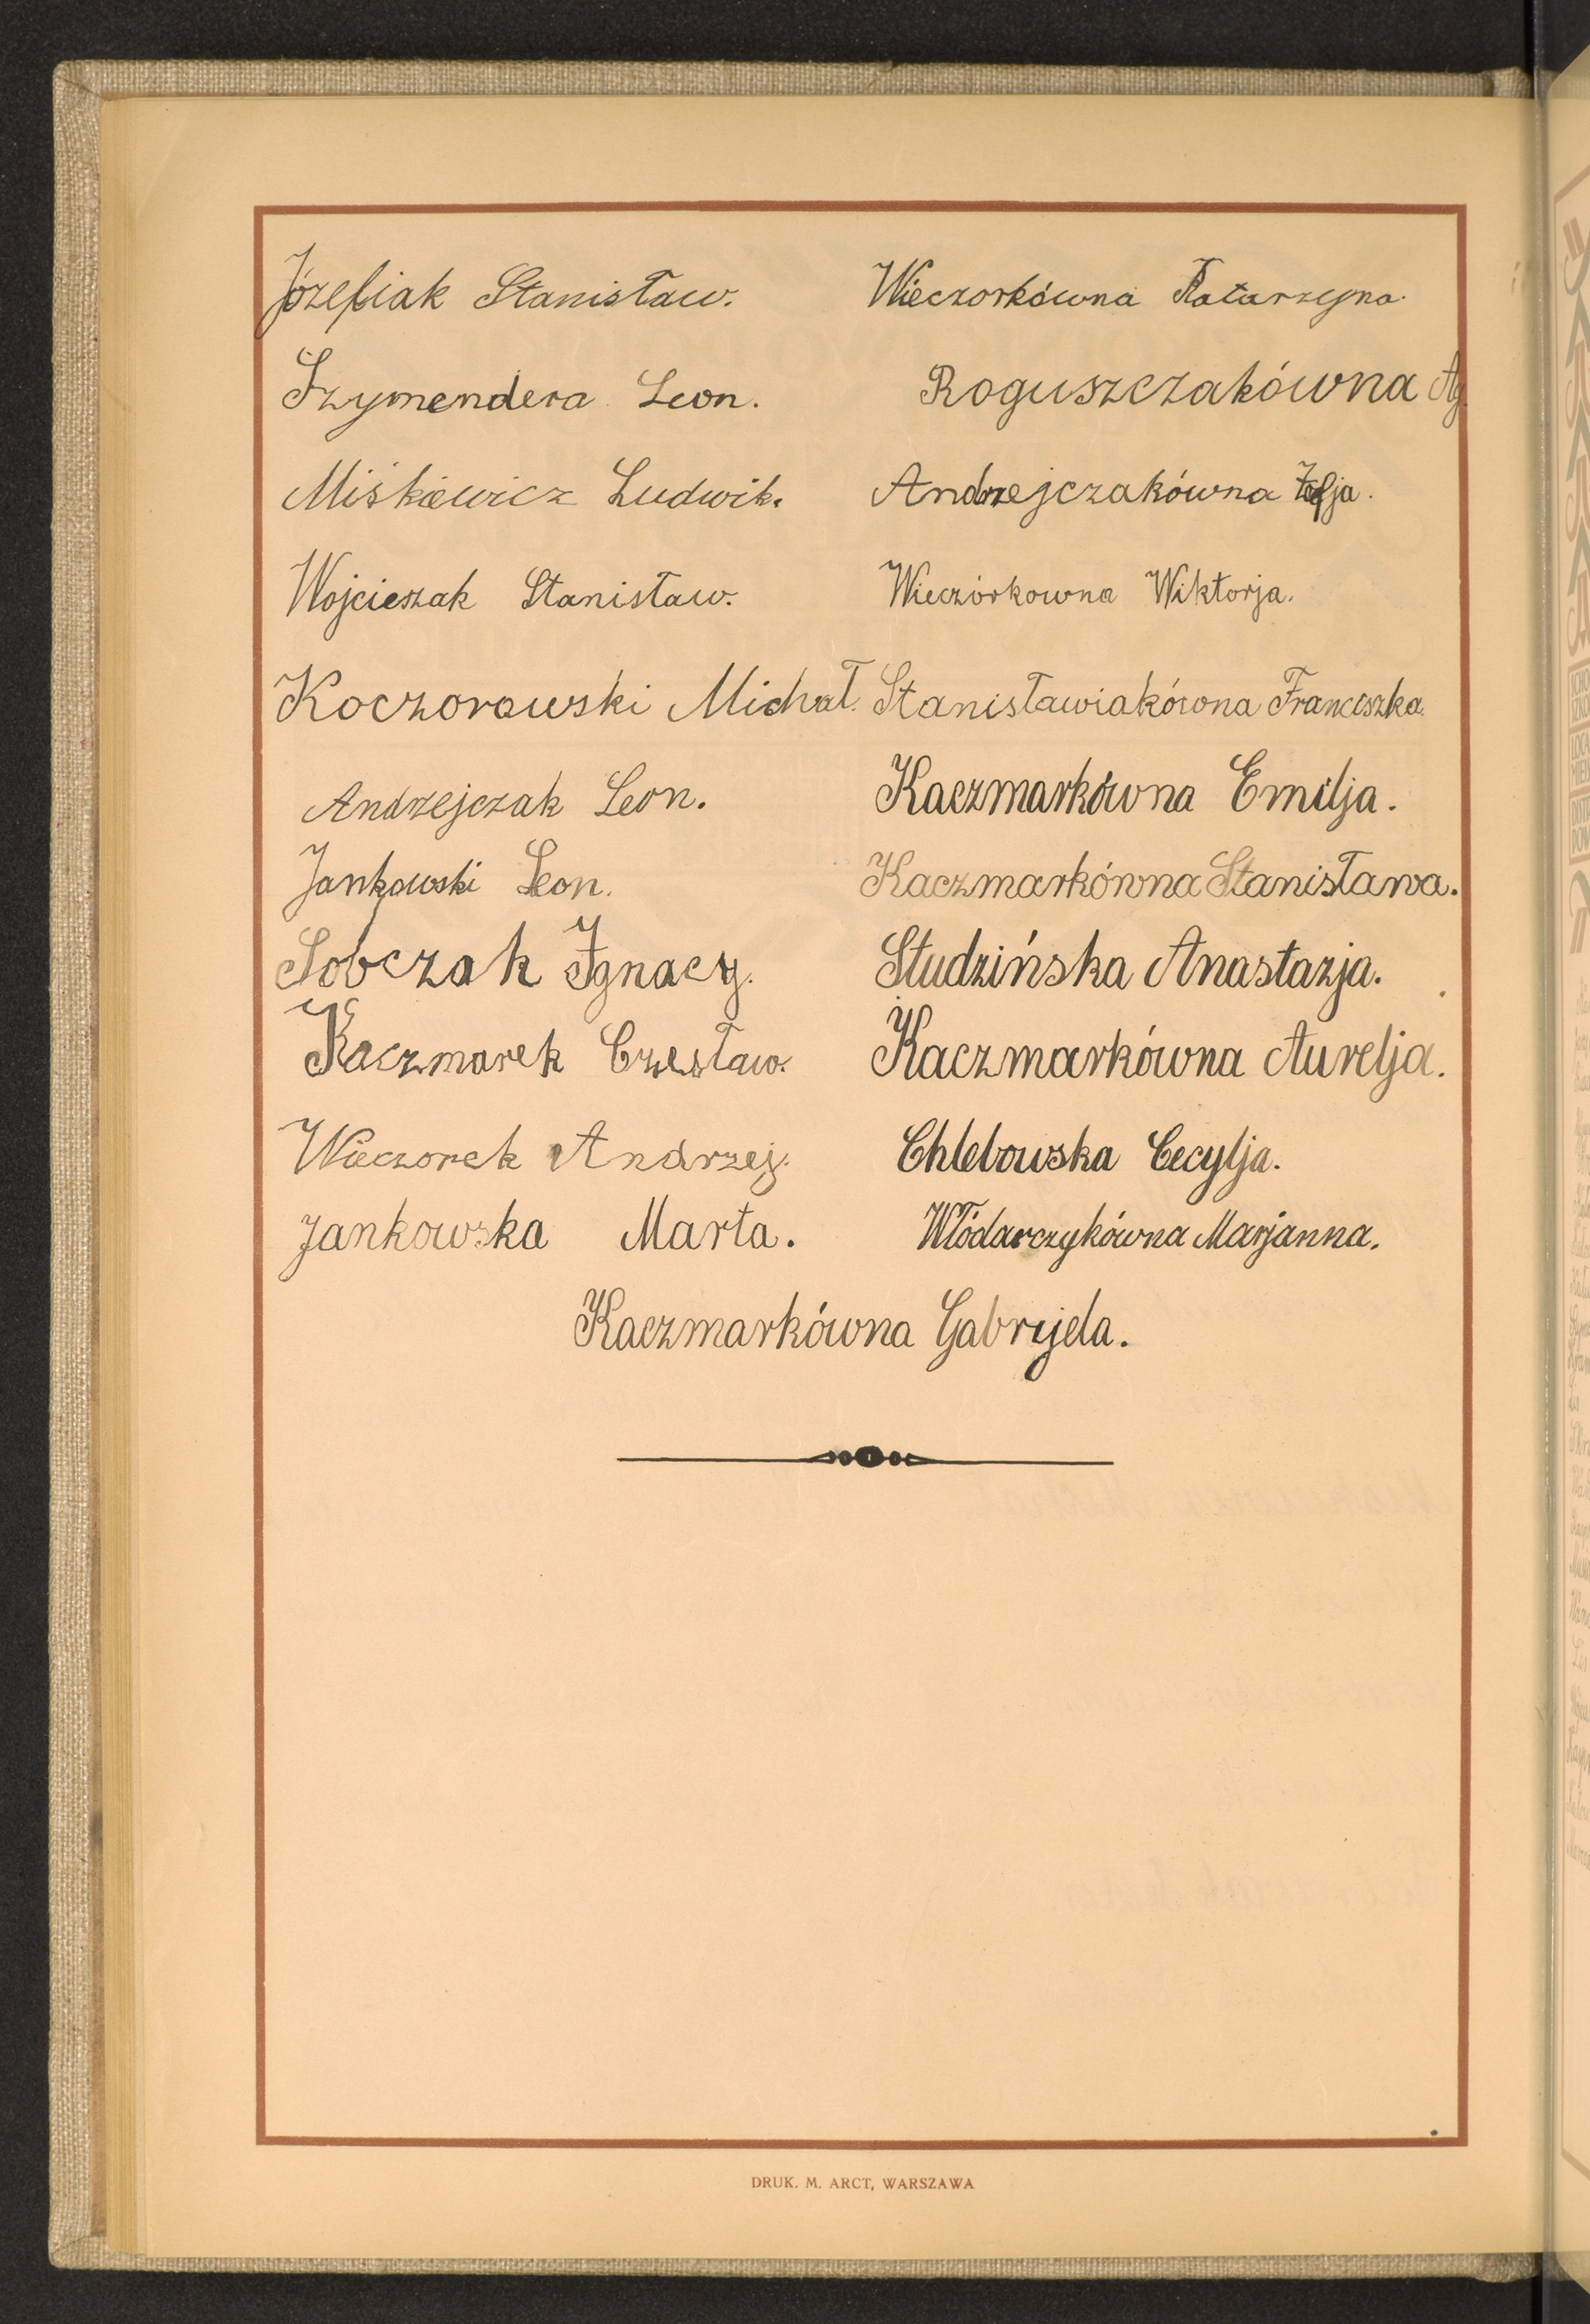 Józefiak Stanisław.
Szymendera Leon.
Miśkiewicz Ludwik.
Wojcieszak Stanisław.
Koczorowski Michał.
Andrzejczak Leon.
Jankowski Leon.
Sobczak Ignacy.
Kaczmarek Czesław.
Wieczorek Andrzej.
Jankowska Marta.
Wieczorkówna Katarzyna.
Roguszczakówna Ag.
Andrzejczakówna Zofja.
Wieczórkowna Wiktorja.
Stanisławiakówna Franciszka.
Kaczmarkówna Emilja.
Kaczmarkówna Stanisława.
Studzińska Anastazja.
Kaczmarkówna Aurelja.
Chlebowska Cecylja.
Włódarczykówna Marjanna.
Kaczmarkówna Gabryjela.
DRUK. M. ARCT, WARSZAWA